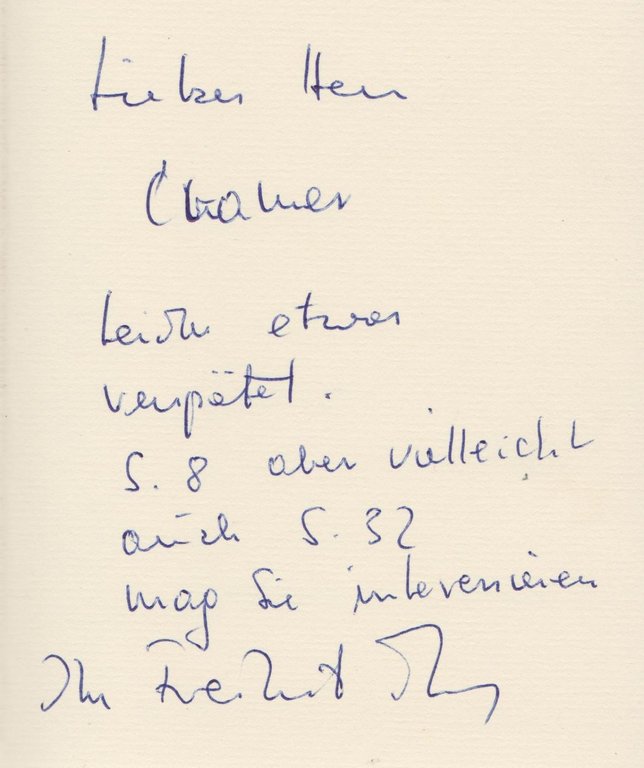 Lieber Herr
Cramer
Leider etwas
verspätet.
S. 8 aber vielleicht
auch S. 32
mag Sie interessieren
Ihr